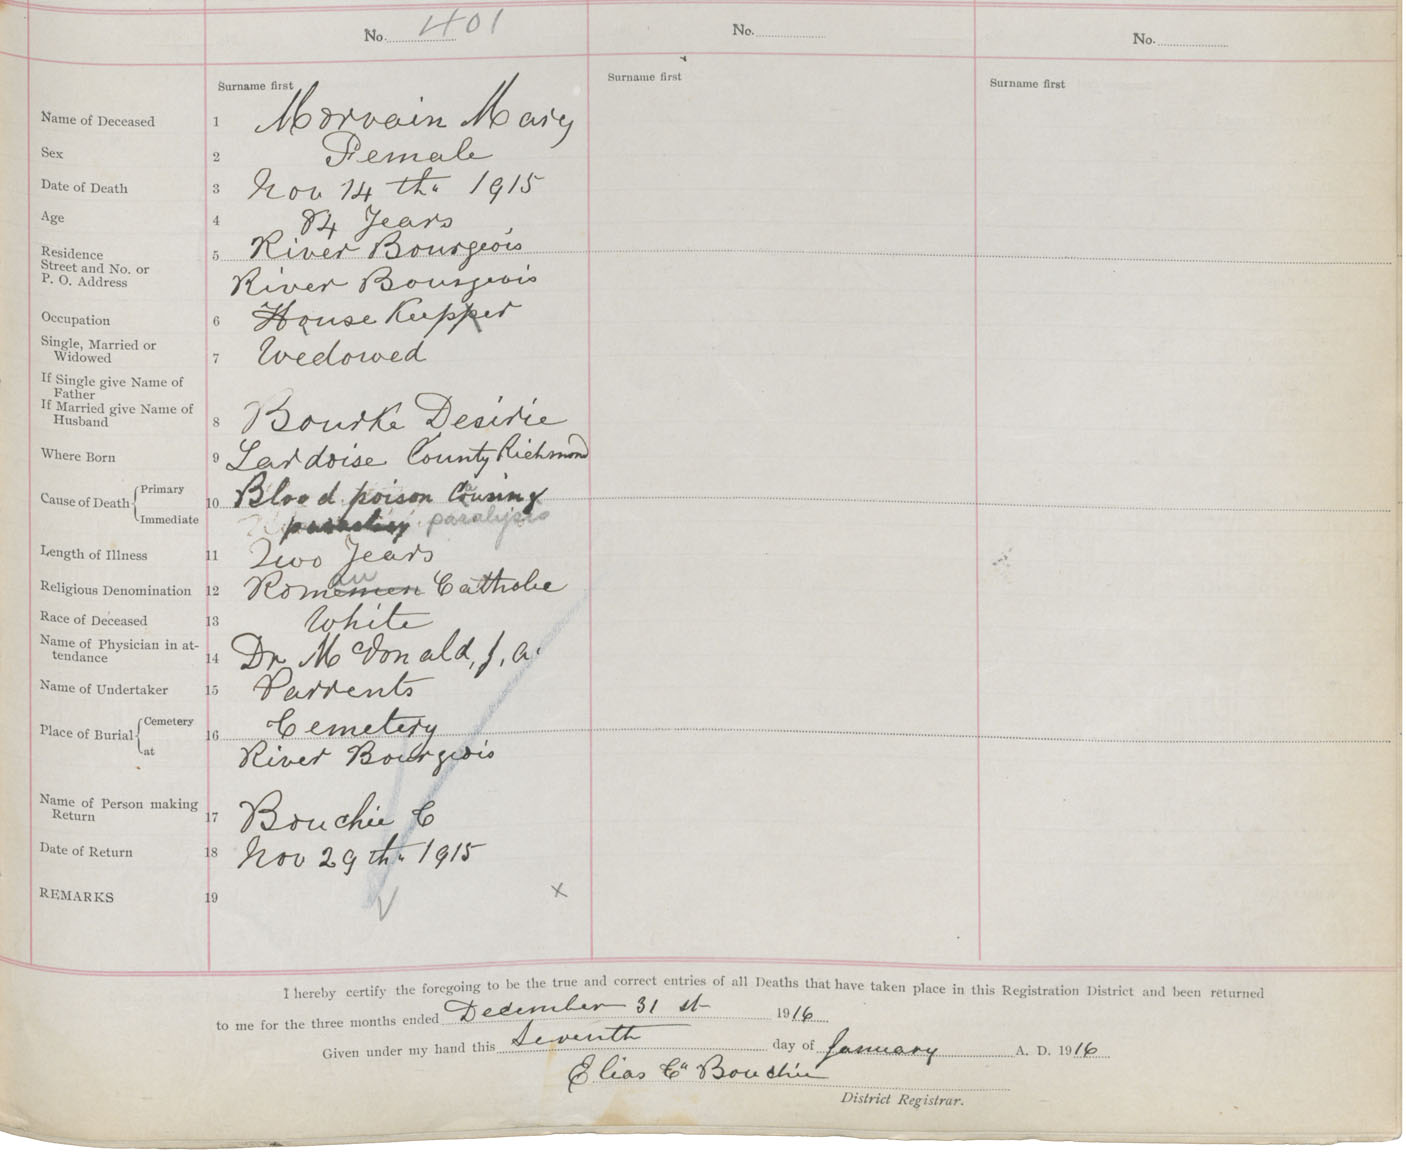 No. 401 No. No.
Surname first Surname first Surname first
Name of Deceased 1 Morvain Mary
Sex 2 Female
Date of Death 3 Nov 14th 1915
Age 4 84 Years
Residence 5 River Bourgeois
Street and No. or
P. O. Address River Bourgeois
Occupation 6 House Keepper
Single, Married or
Widowed 7 Wedowed
If Single give Name of
Father
If Married give Name of
Husband 8 Bourke Desirie
Where Born 9 Lardoise County Richmond
Cause of Death { Primary 10 Blood poison Causing
Immediate paralysis
Length of Illness 11 Two Years
Religious Denomination 12 Roman Catholic
Race of Deceased 13 White
Name of Physician in at-
tendance 14 Dr McDonald, J, A.
Name of Undertaker 15 Parrents
Place of Burial { Cemetery 16 Cemetery
at River Bourgeois
Name of Person making
Return 17 Bouchie C
Date of Return 18 Nov 29th 1915
REMARKS 19 x
I hereby certify the foregoing to be the true and correct entries of all Deaths that have taken place in this Registration District and been returned
to me for the three months ended December 31 st 1916
Given under my hand this Seventh day of January A. D. 1916
Elias Ca Bouchie
District Registrar.